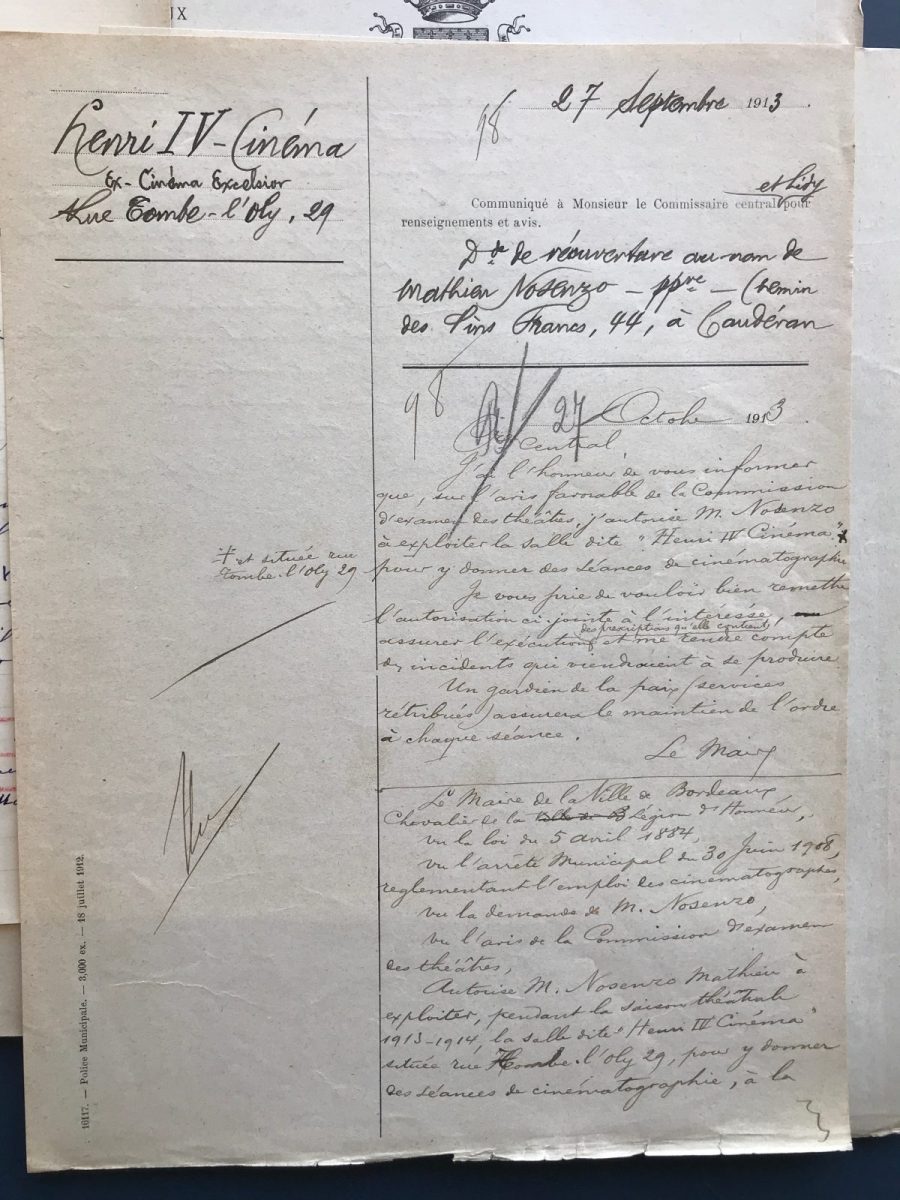 UX
Henri IV - Cinéma
Ex- Cinéma Excelsior
Rue Tombe-l'Oly, 29
98
27 Septembre 1913
Communiqué à Monsieur le Commissaire central pour
renseignements et avis.
Dde de réouverture au nom de
Mathieu Nosenzo - ppre - Chemin
des Pins Francs, 44, à Caudéran
98
27 Octobre 1913
Central
J'ai l'honneur de vous informer
que, sur l'avis favorable de la Commission
d'examen des théâtres, j'autorise M. Nosenzo
à exploiter la salle dite "Henri IV Cinéma"
pour y donner des séances de cinématographie
‡ et située rue
Tombe-l'Oly 29
Je vous prie de vouloir bien remettre
l'autorisation ci-jointe à l'intéressé,
des prescriptions qu'elle contient
assurer l'exécution et me rendre compte
des incidents qui viendraient à se produire
Un gardien de la paix (services
rétribués) assurera le maintien de l'ordre
à chaque séance.
Le Maire
Le Maire de la Ville de Bordeaux,
Chevalier de la Ville de B Légion d'Honneur,
vu la loi du 5 avril 1884,
vu l'arrêté Municipal du 30 Juin 1908,
reglementant l'emploi des cinématographes,
vu la demande de M. Nosenzo,
vu l'avis de la Commission d'éxamen
des théâtres,
Autorise M. Nosenzo Mathieu à
exploiter, pendant la saison théâtrale
1913-1914, la salle dite "Henri IV Cinéma"
située rue Tombe-l'Oly 29, pour y donner
des séances de cinématographie, à la
16117. — Police Municipale. — 3,000 ex. — 18 juillet 1912.